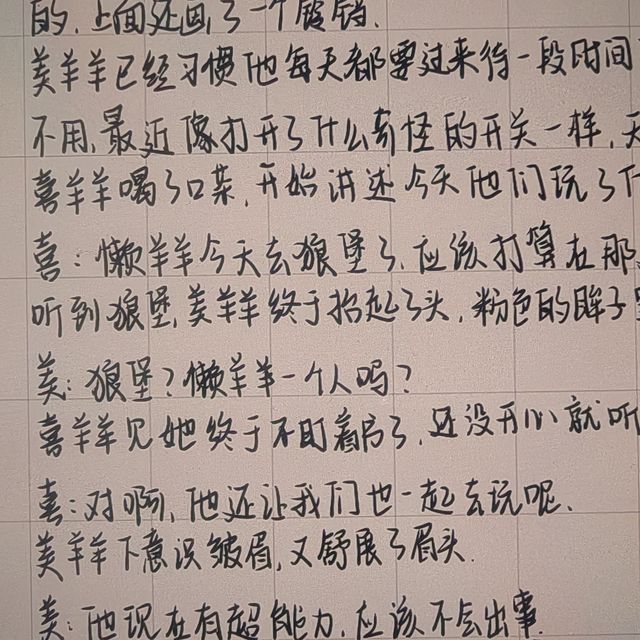 的,上面还画了一个铃铛.
美羊羊已经习惯他每天都要过来待一段时间
不用,最近像打开了什么奇怪的开关一样,天
喜羊羊喝了口茶,开始讲述今天他们玩了什
喜:懒羊羊今天去狼堡了,应该打算在那
听到狼堡,美羊羊终于抬起了头,粉色的眸子
美:狼堡?懒羊羊一个人吗?
喜羊羊见她终于不盯着了,还没开心就听
喜:对啊,他还让我们也一起去玩呢.
美羊羊下意识皱眉,又舒展了眉头.
美:他现在有超能力,应该不会出事